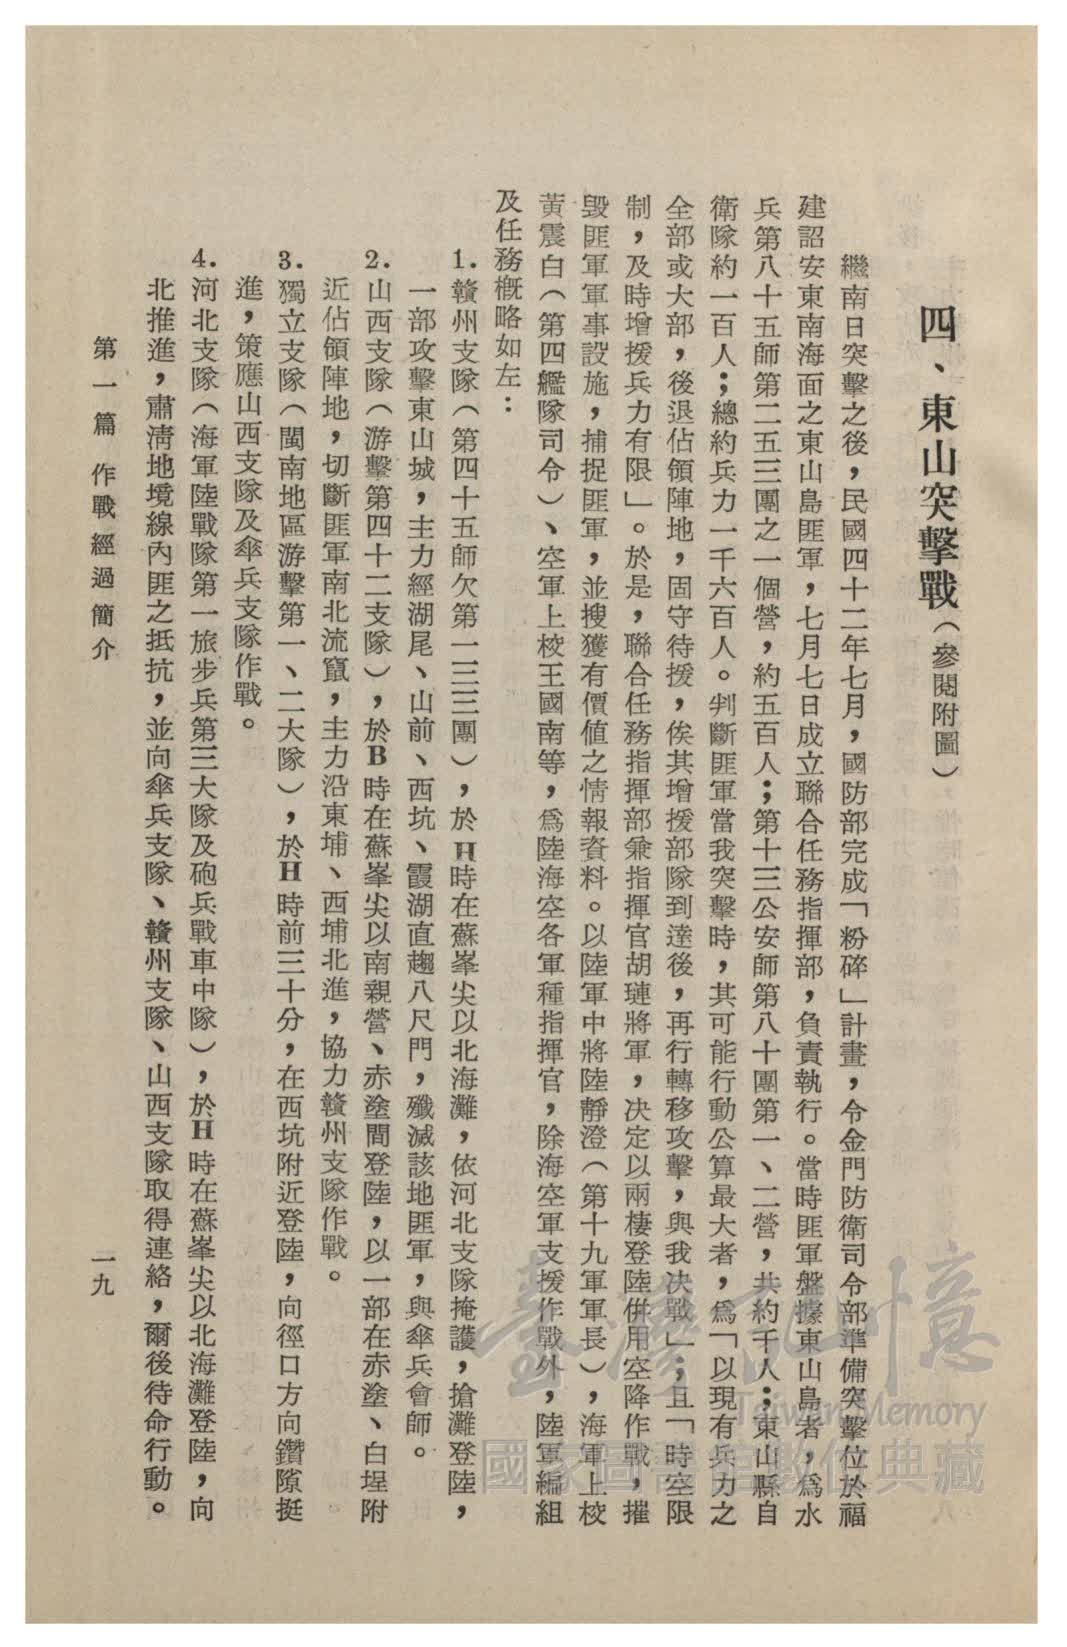 四、東山突擊戰（參閱附圖）
繼南日突擊之後，民國四十二年七月，國防部完成「粉碎」計畫，令金門防衛司令部準備突擊位於福
建詔安東南海面之東山島匪軍，七月七日成立聯合任務指揮部，負責執行。當時匪軍盤據東山島者，爲水
兵第八十五師第二五三團之一個營，約五百人；第十三公安師第八十團第一、二營，共約千人；東山縣自
衛隊約一百人；總約兵力一千六百人。判斷匪軍當我突擊時，其可能行動公算最大者，爲「以現有兵力之
全部或大部，後退佔領陣地，固守待援，俟其增援部隊到達後，再行轉移攻擊，與我決戰」；且「時空限
制，及時增援兵力有限」。於是，聯合任務指揮部兼指揮官胡璉將軍，决定以兩棲登陸併用空降作戰，摧
毀匪軍軍事設施，捕捉匪軍，並搜獲有價值之情報資料。以陸軍中將陸靜澄（第十九軍軍長），海軍上校
黃震白（第四艦隊司令）、空軍上校王國南等，爲陸海空各軍種指揮官，除海空軍支援作戰外，陸軍編組
及任務概略如左：
1.贛州支隊（第四十五師欠第一三三團），於H時在蘇峯尖以北海灘，依河北支隊掩護，搶灘登陸，
一部攻擊東山城，主力經湖尾、山前、西坑、霞湖直趨八尺門，殲滅該地匪軍，與傘兵會師。
2.山西支隊（游擊第四十二支隊），於B時在蘇峯尖以南親營、赤塗間登陸，以一部在赤塗、白埕附
近佔領陣地，切斷匪軍南北流竄，主力沿東埔、西埔北進，協力贛州支隊作戰。
3.獨立支隊（閩南地區游擊第一、二大隊），於H時前三十分，在西坑附近登陸，向徑口方向鑽隙挺
進，策應山西支隊及傘兵支隊作戰。
4.河北支隊（海軍陸戰隊第一旅步兵第三大隊及砲兵戰車中隊），於H時在蘇峯尖以北海灘登陸，向
北推進，肅淸地境線內匪之抵抗，並向傘兵支隊、贛州支隊、山西支隊取得連絡，爾後待命行動。
第一篇 作戰經過簡介
一九
臺灣記憶
Taiwan Memory
國家圖書館數位典藏